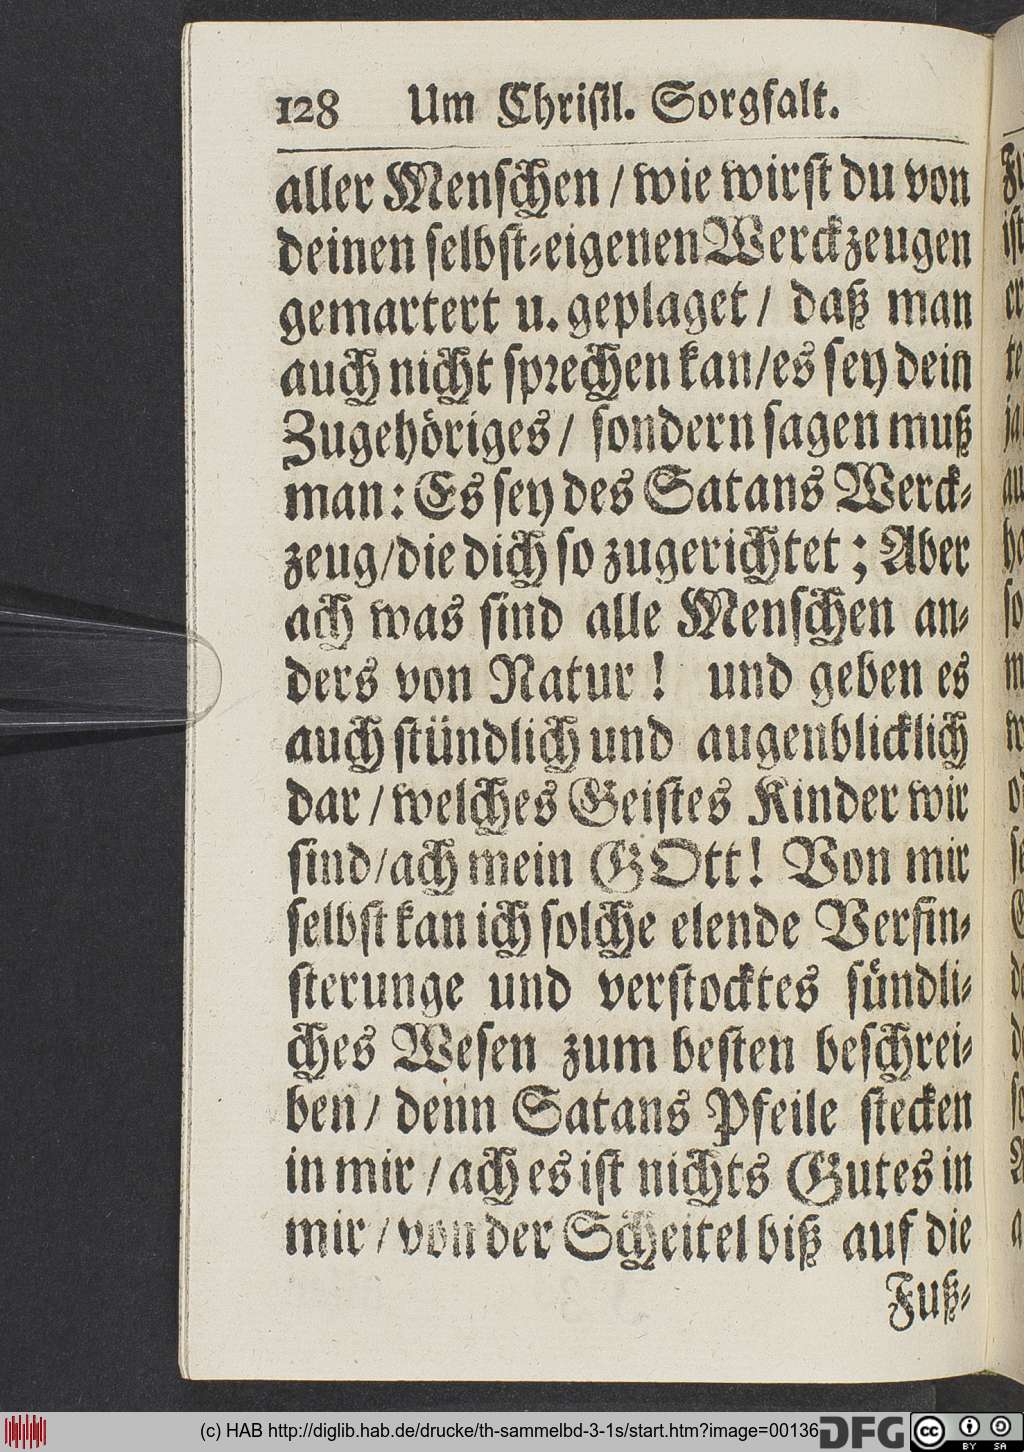 128 Um Christl. Sorgfalt.
aller Menschen / wie wirst du von
deinen selbst-eigenen Werckzeugen
gemartert u. geplaget / daß man
auch nicht sprechen kan/es sey dein
Zugehöriges / sondern sagen muß
man: Es sey des Satans Werck-
zeug/die dich so zugerichtet; Aber
ach was sind alle Menschen an-
ders von Natur! und geben es
auch stündlich und augenblicklich
dar / welches Geistes Kinder wir
sind/ach mein GOtt! Von mir
selbst kan ich solche elende Verfin-
sterunge und verstocktes sündli-
ches Wesen zum besten beschrei-
ben / denn Satans Pfeile stecken
in mir / ach es ist nichts Gutes in
mir / von der Scheitel biß auf die
Fuß-
(c) HAB http://diglib.hab.de/drucke/th-sammelbd-3-1s/start.htm?image=00136
DFG
cc BY SA